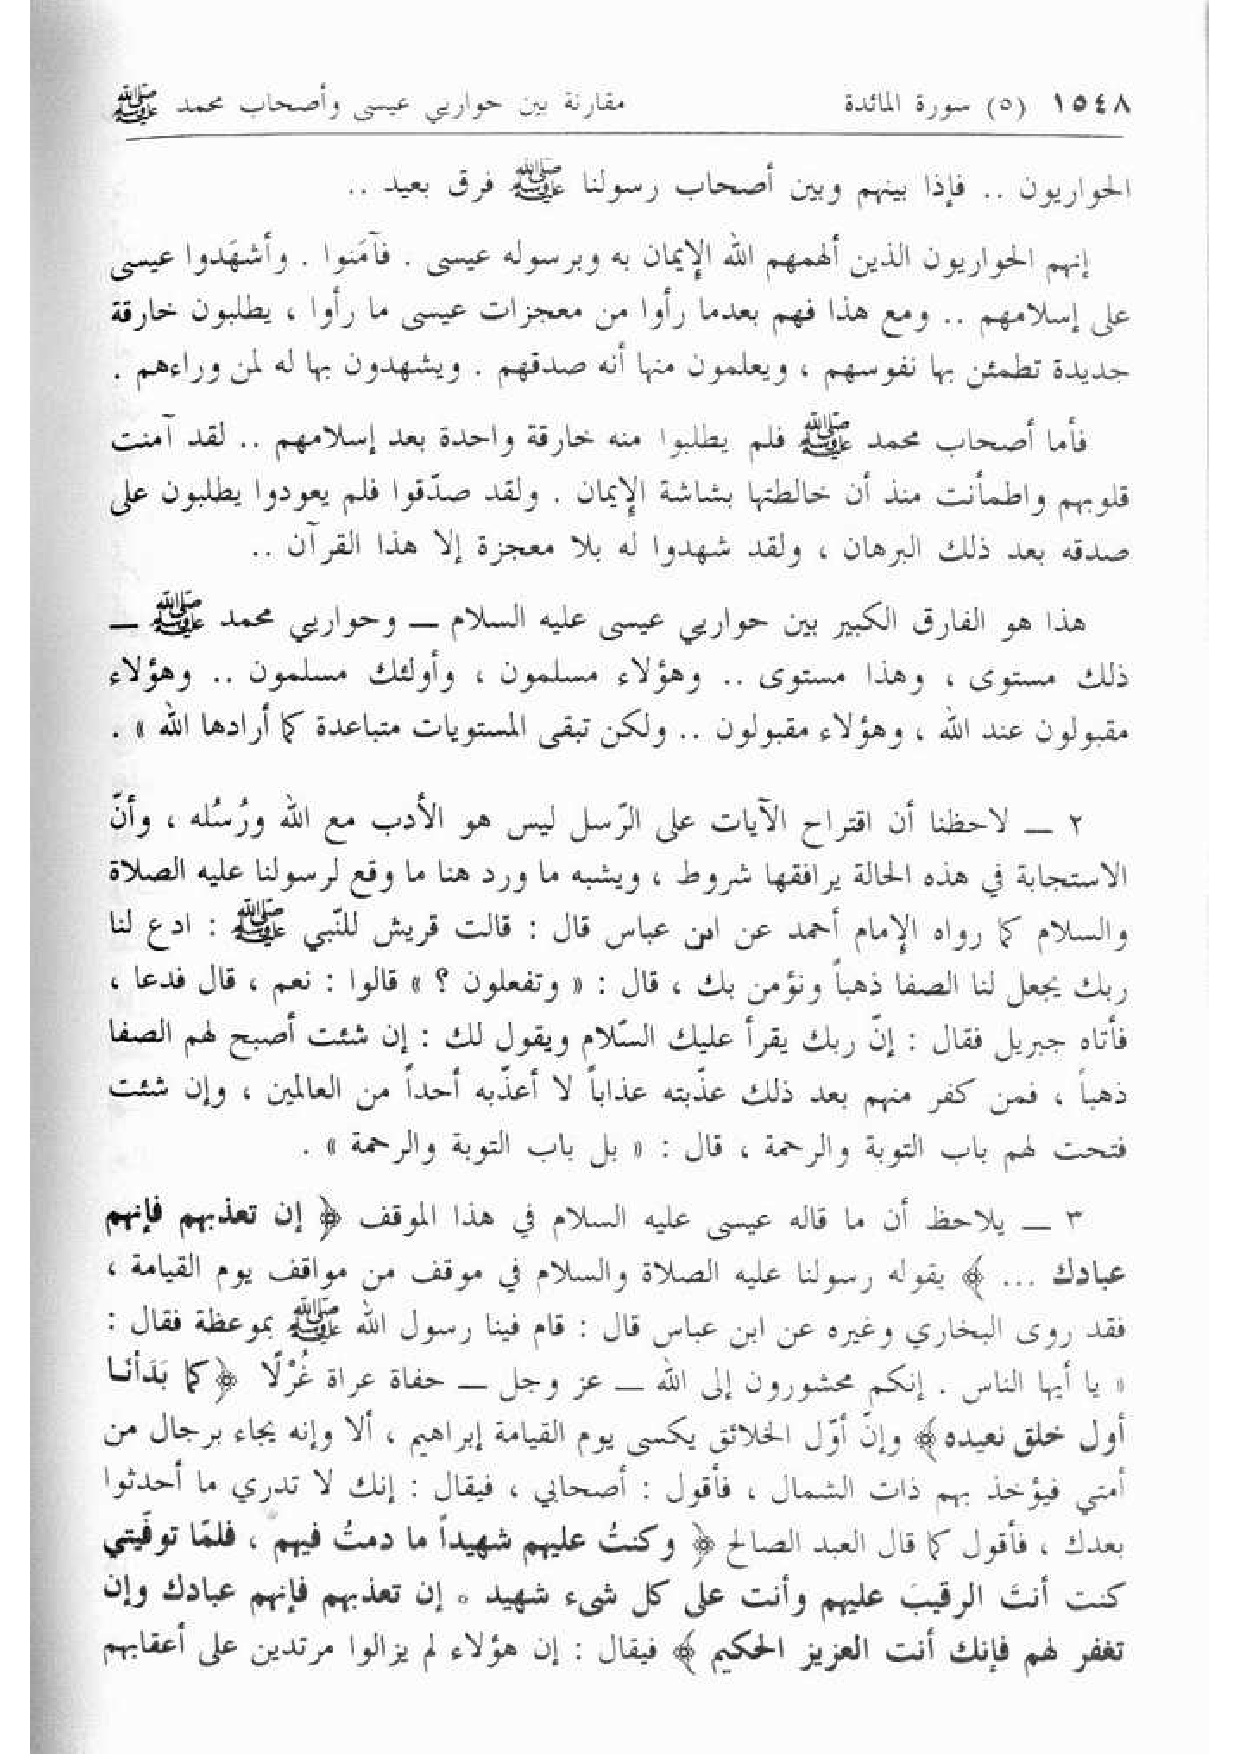 ١٥٤٨ (٥) سورة المائدة مقارنة بين حواريي عيسى وأصحاب محمد ﷺ
الحواريون .. فإذا بينهم وبين أصحاب رسولنا ﷺ فرق بعيد ..
إنهم الحواريون الذين ألهمهم الله الإيمان به وبرسوله عيسى . فآمَنوا . وأشهَدوا عيسى
على إسلامهم .. ومع هذا فهم بعدما رأوا من معجزات عيسى ما رأوا ، يطلبون خارقة
جديدة تطمئن بها نفوسهم ، ويعلمون منها أنه صدقهم . ويشهدون بها له لمن وراءهم .
فأما أصحاب محمد ﷺ فلم يطلبوا منه خارقة واحدة بعد إسلامهم .. لقد آمنت
قلوبهم واطمأنت منذ أن خالطتها بشاشة الإيمان . ولقد صدّقوا فلم يعودوا يطلبون على
صدقه بعد ذلك البرهان ، ولقد شهدوا له بلا معجزة إلا هذا القرآن ..
هذا هو الفارق الكبير بين حواريي عيسى عليه السلام ــ وحواريي محمد ﷺ ــ
ذلك مستوى ، وهذا مستوى .. وهؤلاء مسلمون ، وأولئك مسلمون .. وهؤلاء
مقبولون عند الله ، وهؤلاء مقبولون .. ولكن تبقى المستويات متباعدة كما أرادها الله » .
٢ ــ لاحظنا أن اقتراح الآيات على الرّسل ليس هو الأدب مع الله ورُسُله ، وأنّ
الاستجابة في هذه الحالة يرافقها شروط ، ويشبه ما ورد هنا ما وقع لرسولنا عليه الصلاة
والسلام كما رواه الإمام أحمد عن ابن عباس قال : قالت قريش للنّبي ﷺ : ادع لنا
ربك يجعل لنا الصفا ذهباً ونؤمن بك ، قال : « وتفعلون ؟ » قالوا : نعم ، قال فدعا ،
فأتاه جبريل فقال : إنّ ربك يقرأ عليك السّلام ويقول لك : إن شئت أصبح لهم الصفا
ذهباً ، فمن كفر منهم بعد ذلك عذّبته عذاباً لا أعذّبه أحداً من العالمين ، وإن شئت
فتحت لهم باب التوبة والرحمة ، قال : « بل باب التوبة والرحمة » .
٣ ــ يلاحظ أن ما قاله عيسى عليه السلام في هذا الموقف ﴿ إن تعذبهم فإنهم
عبادك ... ﴾ يقوله رسولنا عليه الصلاة والسلام في موقف من مواقف يوم القيامة ،
فقد روى البخاري وغيره عن ابن عباس قال : قام فينا رسول الله ﷺ بموعظة فقال :
« يا أيها الناس . إنكم محشورون إلى الله ــ عز وجل ــ حفاة عراة غُرْلًا ﴿كما بَدَأنا
أول خلق نعيده﴾ وإنّ أوّل الخلائق يكسى يوم القيامة إبراهيم ، ألا وإنه يجاء برجال من
أمتي فيؤخذ بهم ذات الشمال ، فأقول : أصحابي ، فيقال : إنك لا تدري ما أحدثوا
بعدك ، فأقول كما قال العبد الصالح ﴿ وكنتُ عليهم شهيداً ما دمتُ فيهم ، فلمّا توفّيتني
كنت أنتَ الرقيبَ عليهم وأنت على كل شىء شهيد ٥ إن تعذبهم فإنهم عبادك وإن
تغفر لهم فإنك أنت العزيز الحكيم ﴾ فيقال : إن هؤلاء لم يزالوا مرتدين على أعقابهم